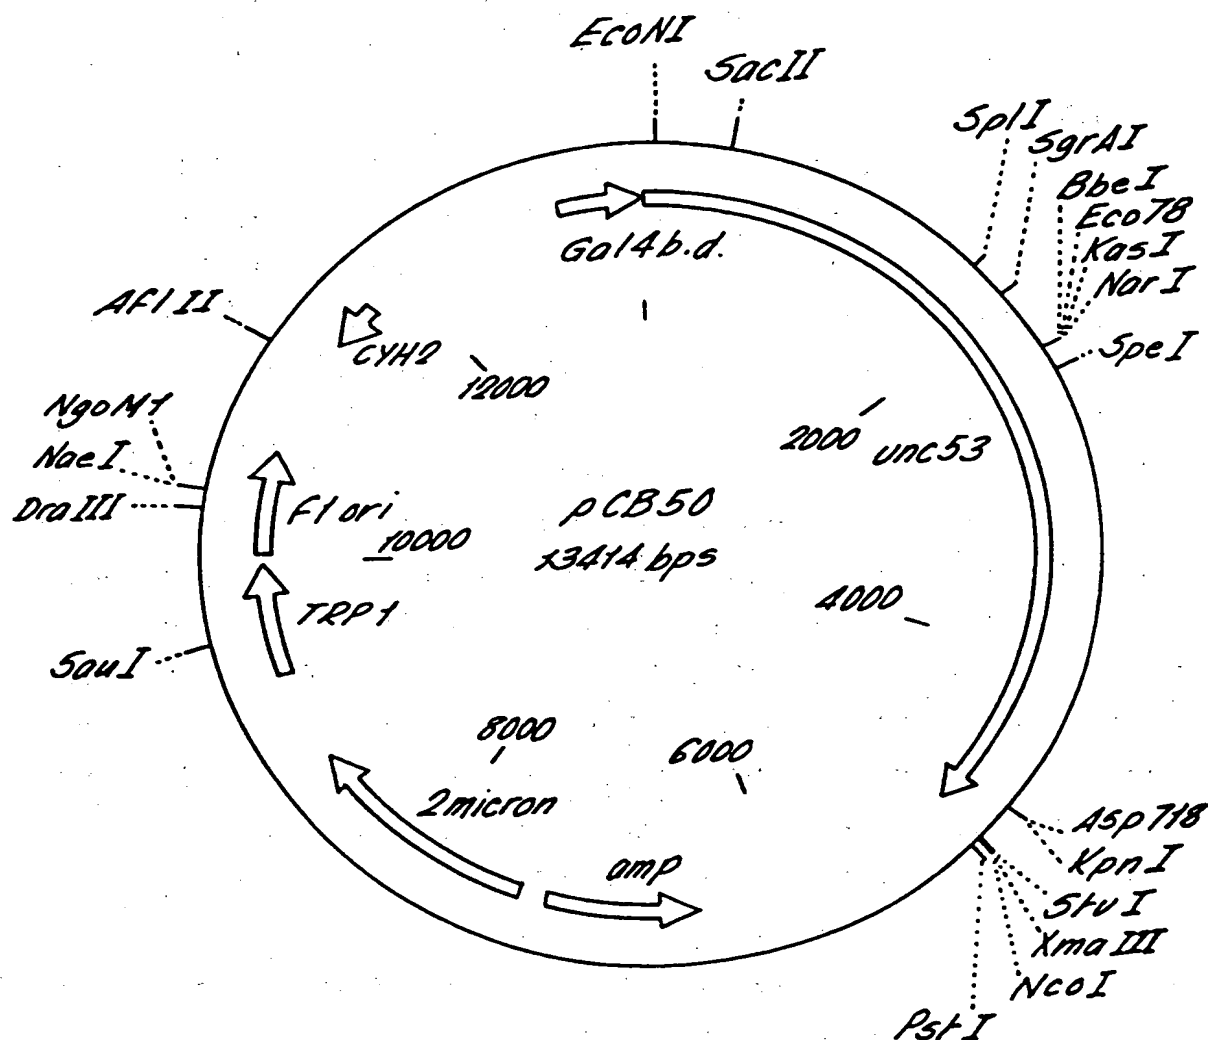 EcoNI
SacII
SplI
SgrAI
BbeI
Eco78
KasI
NarI
SpeI
Gal4b.d.
AflII
CYH2
12000
NgoM1
NaeI
DraIII
2000
unc53
F1 ori
pCB50
10000
13414 bps
4000
TRP1
SauI
8000
6000
2micron
amp
Asp718
KpnI
StuI
XmaIII
NcoI
PstI